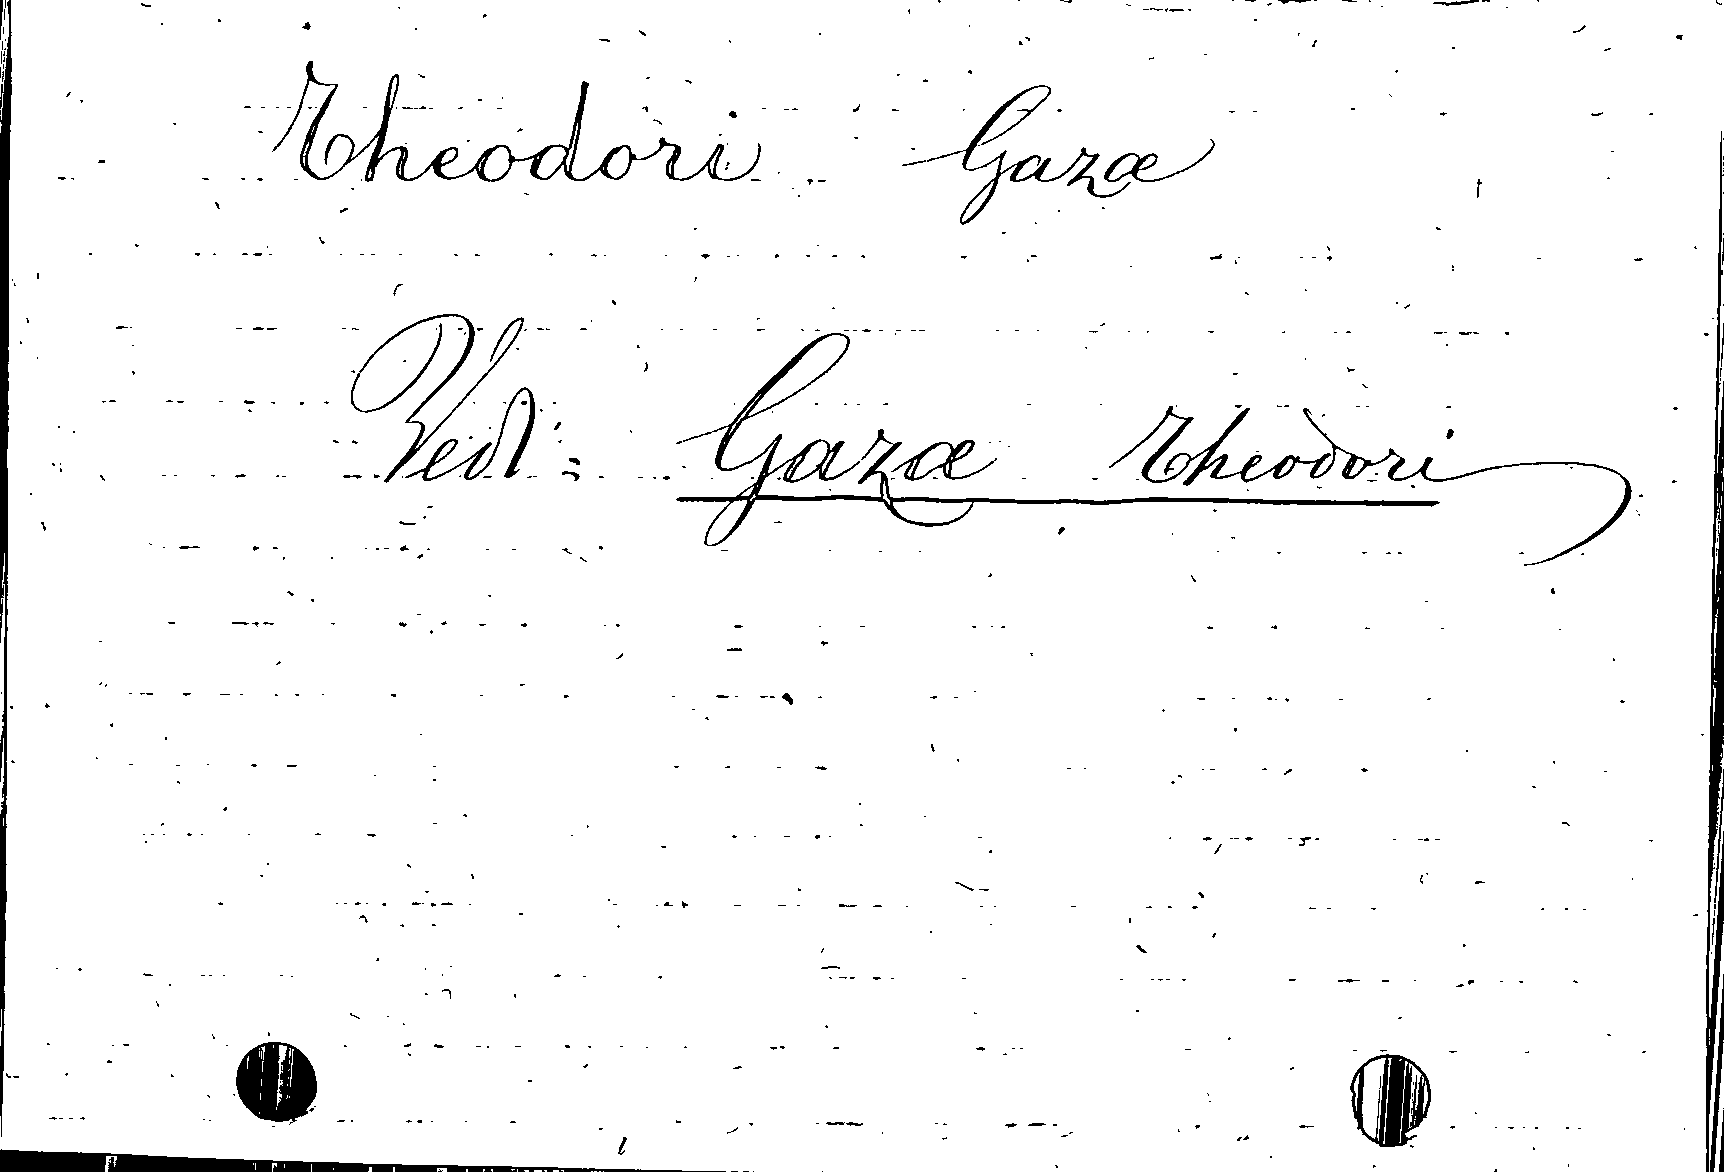 Theodori Gazæ
Vedi: Gazæ Theodori